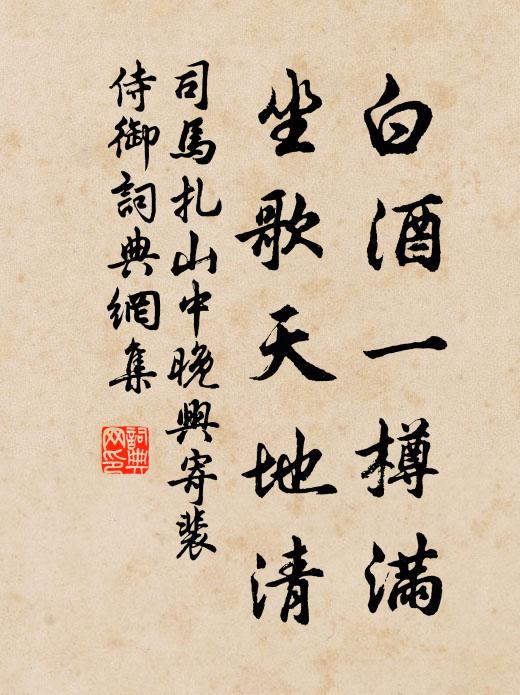 白酒一樽滿
坐歌天地清
司馬扎山中晚興寄裴
侍御詞典網集
詞典
网印